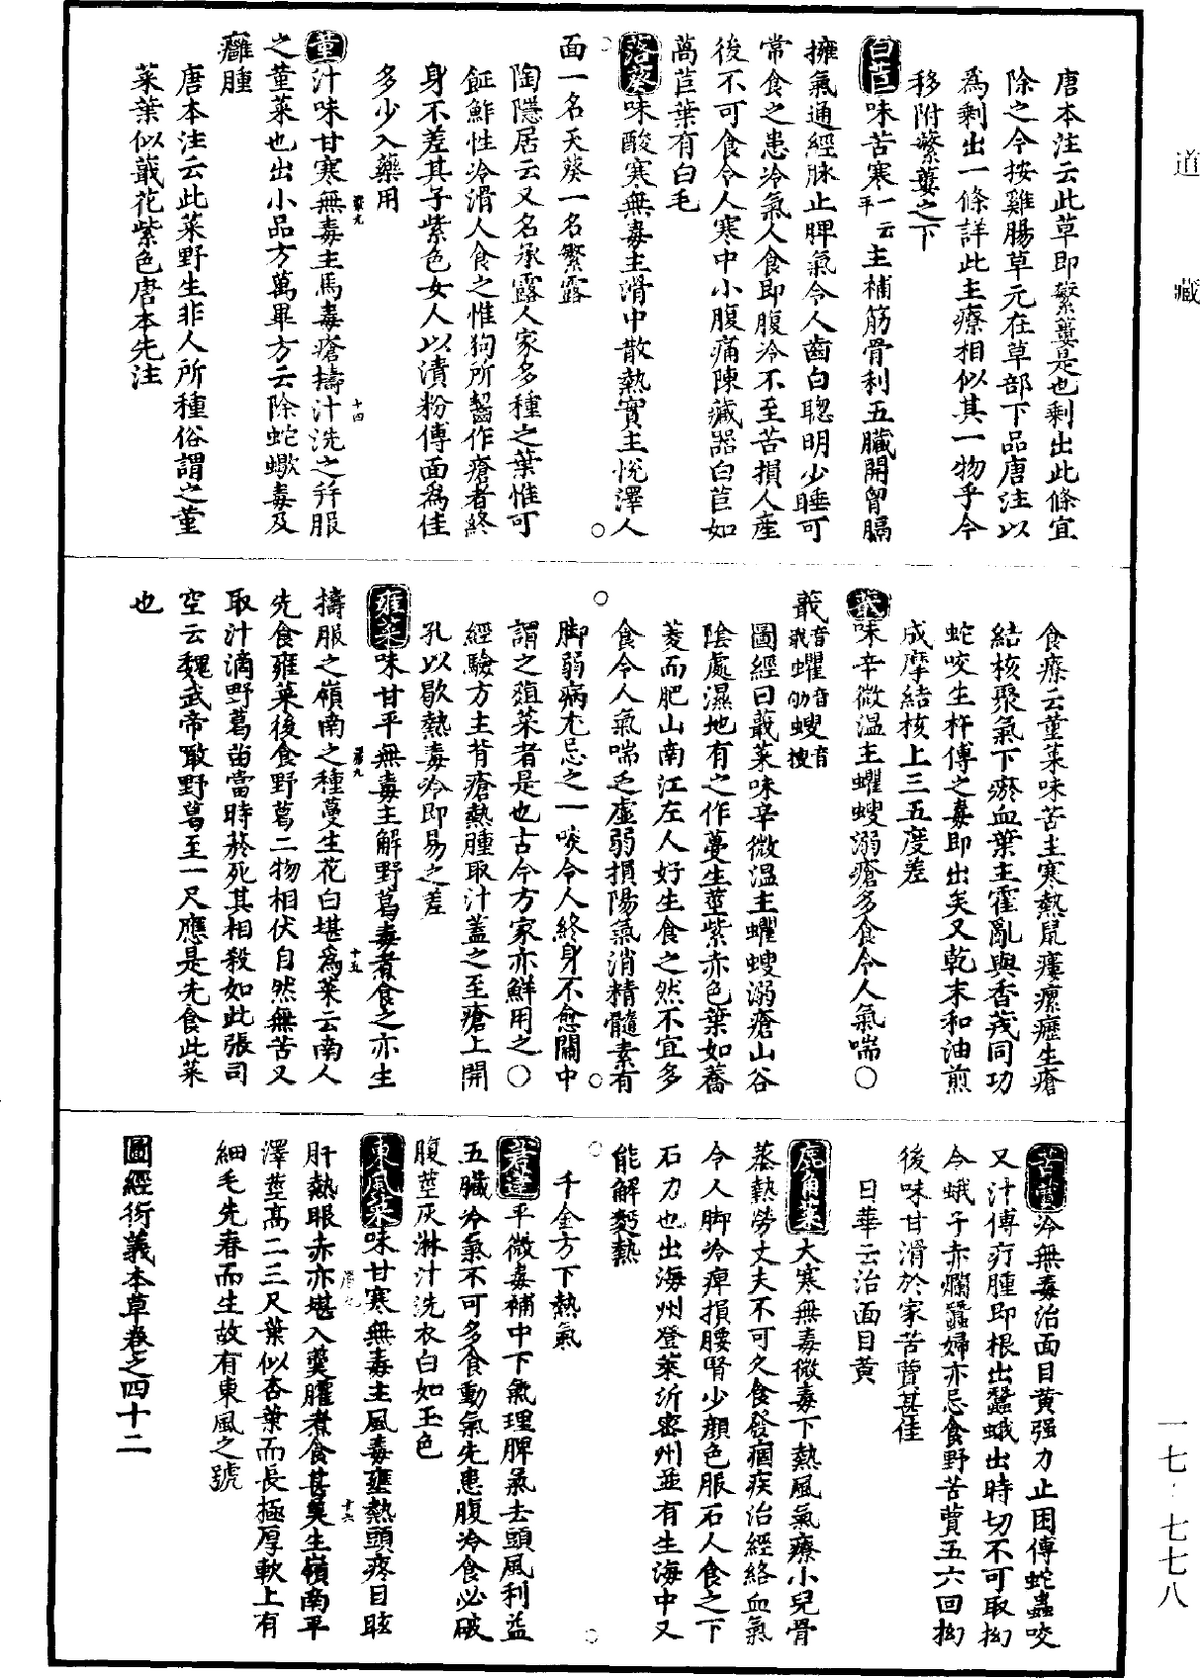 唐本注云此草即蘩蔞是也剩出此條宜
除之今按雞腸草元在草部下品唐注以
為剩出一條詳此主療相似其一物乎今
移附蘩蔞之下
白苣味苦寒一云平主補筋骨利五臟開胷膈
擁氣通經脉止脾氣令人齒白聰明少睡可
常食之患冷氣人食即腹冷不至苦損人產
後不可食令人寒中小腹痛陳藏器白苣如
萵苣葉有白毛
落葵味酸寒無毒主滑中散熱實主悅澤人
面一名天葵一名繁露
陶隱居云又名承露人家多種之葉惟可
䬪鮓性冷滑人食之惟狗所齧作瘡者終
身不差其子紫色女人以漬粉傅面為佳
多少入藥用
堇汁味甘寒無毒主馬毒瘡擣汁洗之并服
之堇菜也出小品方萬畢方云除蛇蠍毒及
癰腫
唐本注云此菜野生非人所種俗謂之堇
菜葉似蕺花紫色唐本先注
食療云堇菜味苦主寒熱鼠瘻瘰癧生瘡
結核聚氣下瘀血葉主霍亂與香茙同功
蛇咬生杵傅之毒即出矣又乾末和油煎
成摩結核上三五度差
蕺味辛微溫主蠷螋溺瘡多食令人氣喘○
蕺音戢蠷音劬螋音搜
圖經曰蕺菜味辛微溫主蠷螋溺瘡山谷
陰處濕地有之作蔓生莖紫赤色葉如蕎
菱而肥山南江左人好生食之然不宜多
食令人氣喘乏虛弱損陽氣消精髓素有
脚弱病尤忌之一啖令人終身不愈關中
謂之葅菜者是也古今方家亦鮮用之○
經驗方主背瘡熱腫取汁蓋之至瘡上開
孔以歇熱毒冷即易之差
雍菜味甘平無毒主解野葛毒煮食之亦生
擣服之嶺南之種蔓生花白堪為菜云南人
先食雍菜後食野葛二物相伏自然無苦又
取汁滴野葛苗當時菸死其相殺如此張司
空云魏武帝噉野葛至一尺應是先食此菜
也
苦蕒冷無毒治面目黃强力止困傅蛇蟲咬
又汁傅疔腫即根出蠶蛾出時切不可取拗
令蛾子赤爛蠶婦亦忌食野苦蕒五六回拗
後味甘滑於家苦蕒甚佳
日華云治面目黃
鹿角菜大寒無毒微毒下熱風氣療小兒骨
蒸熱勞丈夫不可久食發痼疾治經絡血氣
令人脚冷痺損腰腎少顏色服石人食之下
石力也出海州登萊沂密州並有生海中又
能解麪熱
千金方下熱氣
莙薘平微毒補中下氣理脾氣去頭風利益
五臟冷氣不可多食動氣先患腹冷食必破
腹莖灰淋汁洗衣白如玉色
東風菜味甘寒無毒主風毒壅熱頭疼目眩
肝熱眼赤亦堪入羹臛煮食甚美生嶺南平
澤莖高二三尺葉似杏葉而長極厚軟上有
細毛先春而生故有東風之號
圖經衍義本草卷之四十二
道藏
一七·七七八